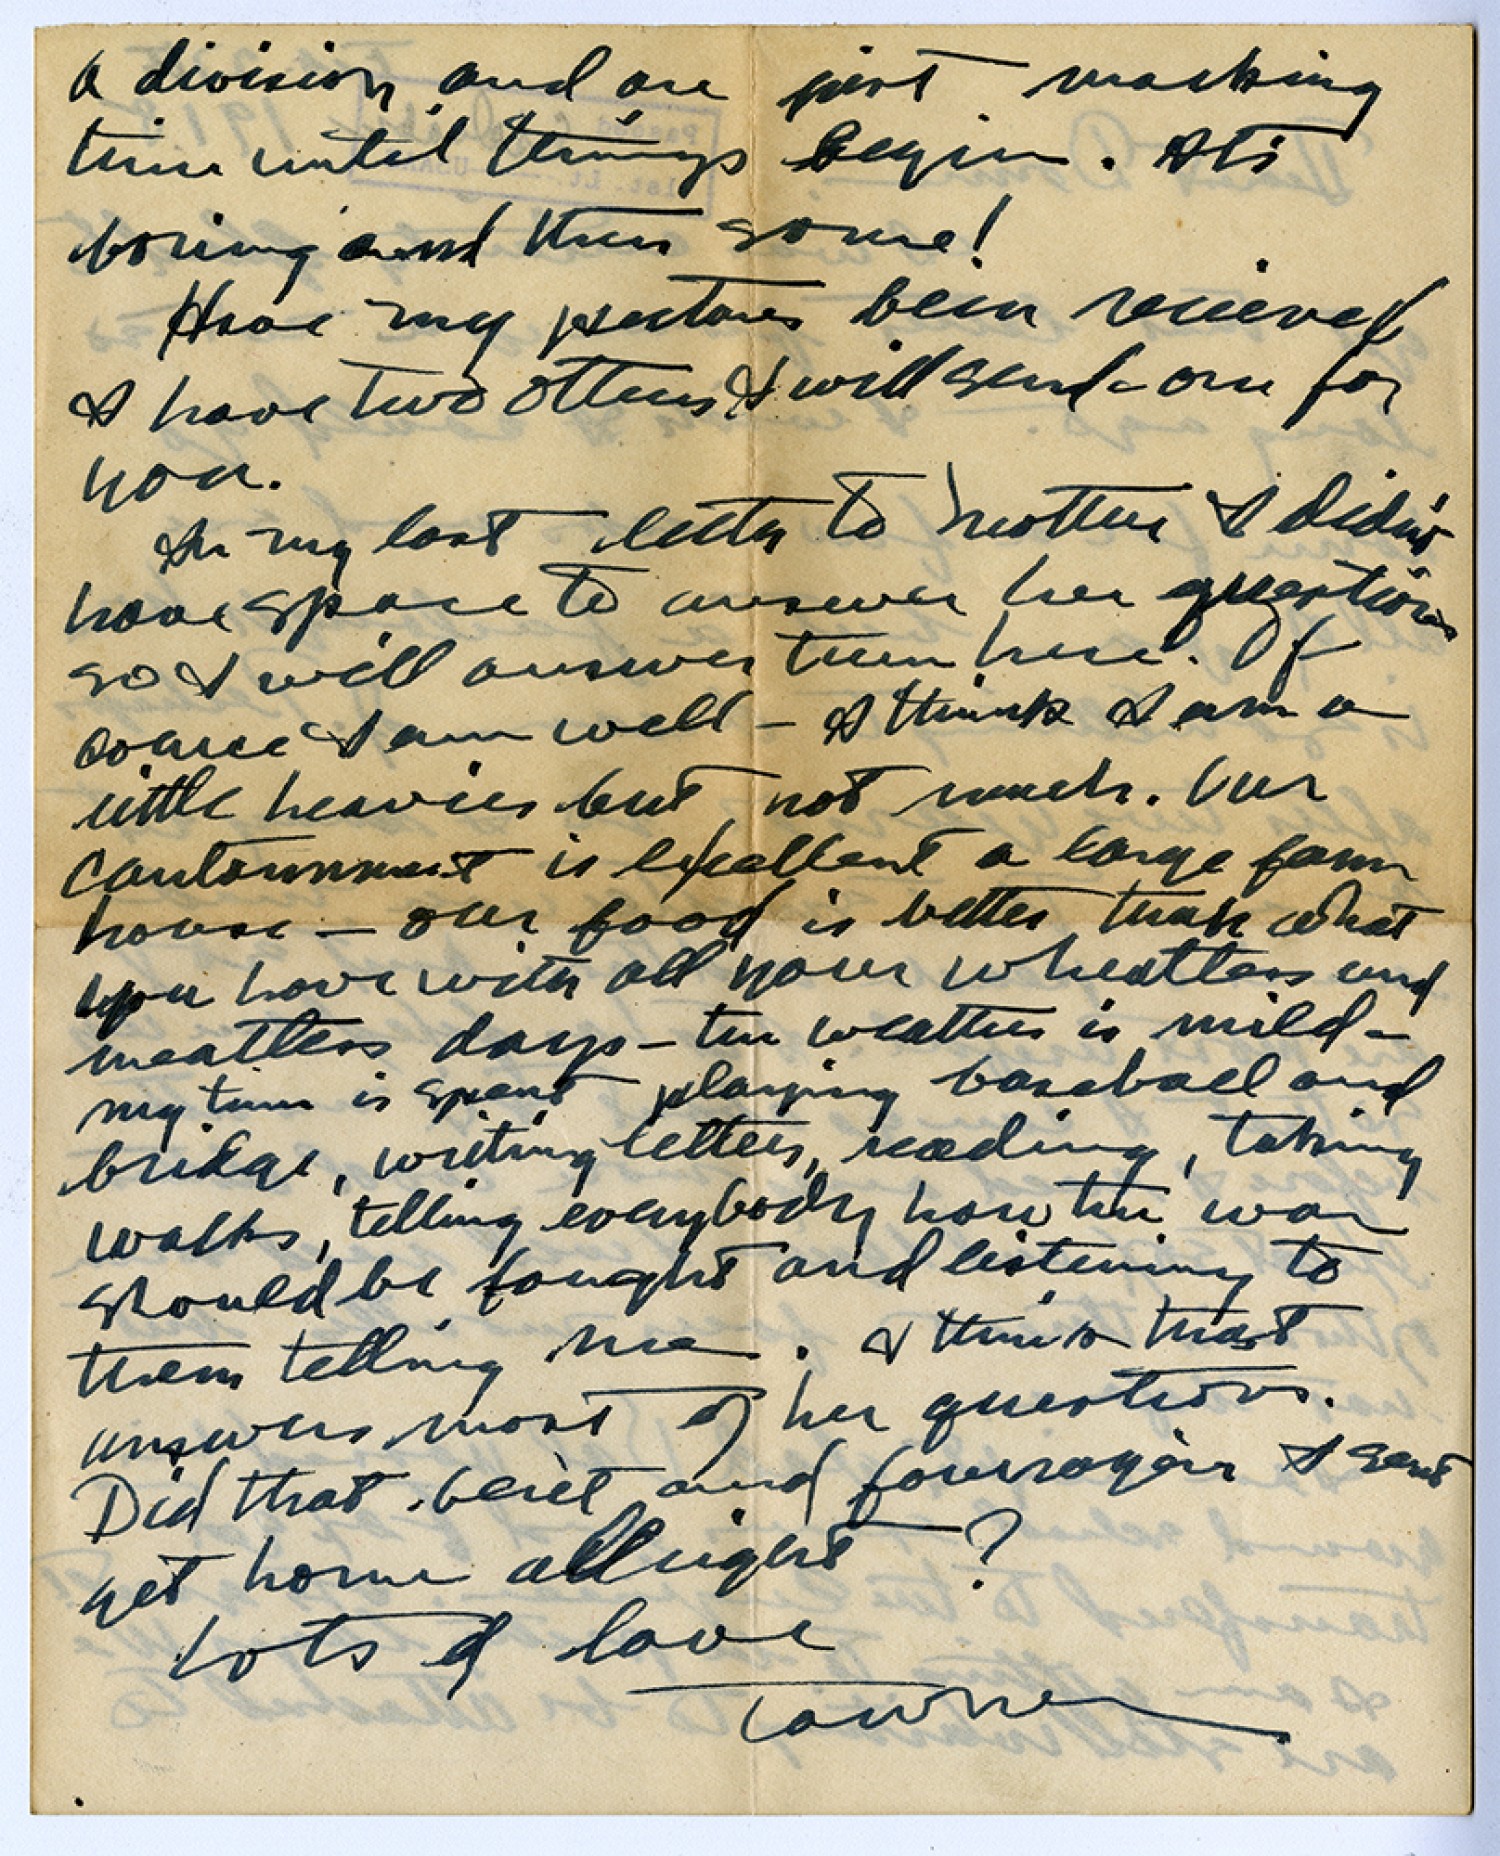 a division and are just marking
time until things begin. Its
boring and then some!
Have my pictures been recieved
I have two others I will send one for
you.
In my last letter to Mother I didn't
have space to answer her questions
so I will answer them here. Of
course I am well – I think I am a
little heavier but not much. Our
cantonment is excellent a large farm
house – our food is better than what
you have with all your wheatless and
meatless days – the weather is mild –
my time is spent playing baseball and
bridge, writing letters, reading, taking
walks, telling everybody how the war
should be fought and listening to
them telling me. I think that
answers most of her questions.
Did that beret and fourragère I sent
get home allright?
Lots of love